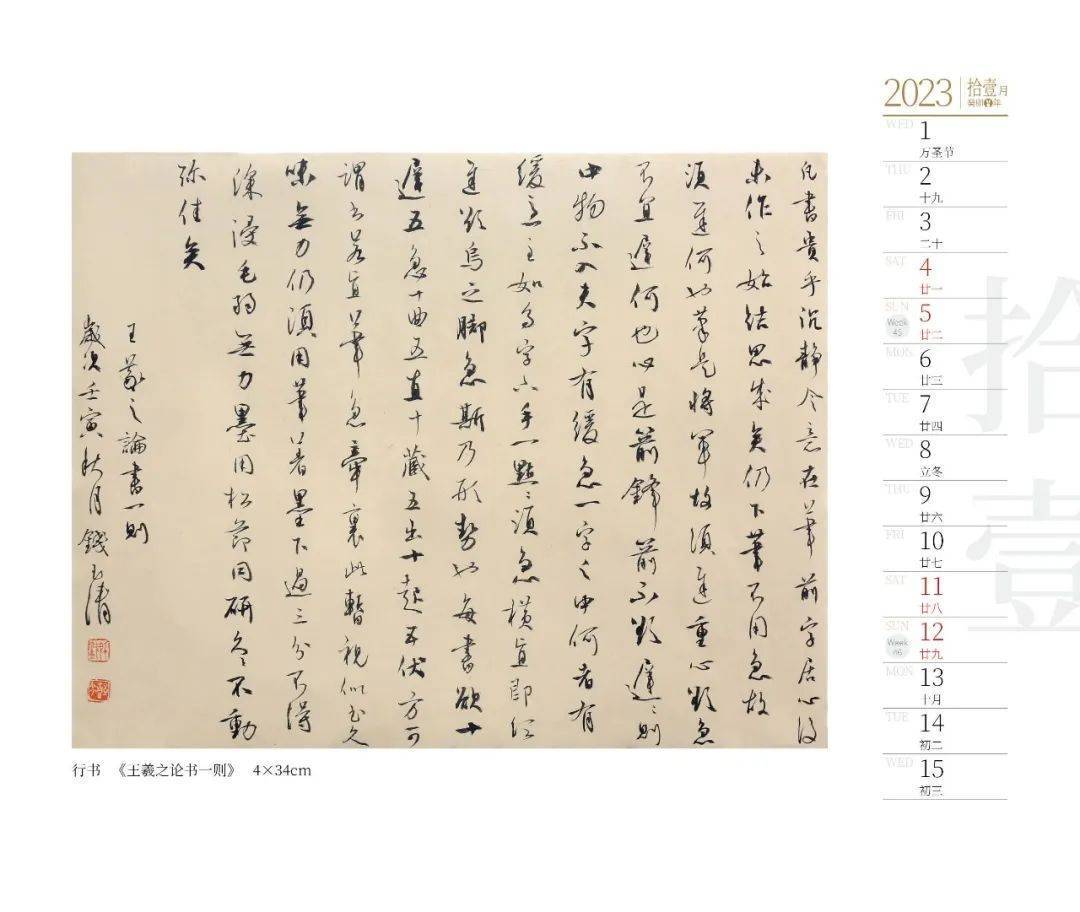 凡書貴乎沉靜令意在筆前字居心後
未作之始結思成矣仍下筆不用急故
須遲何也筆是將軍故須遲重心欲急
不宜遲何也心是箭鋒箭不欲遲〻則
中物不入夫字有緩急一字之中何者有
緩急至如烏字下手一點〻須急橫直即須
遲欲烏之腳急斯乃形勢也每書欲十
遲五急十曲五直十藏五出十起五伏方可
謂書若直筆急牽裹此暫視似書久
味無力仍須用筆著墨下過三分不得
深浸毛弱無力墨用松節同研久〻不動
弥佳矣
王羲之論書一則
歲次壬寅秋月錢玉清
行书 《王羲之论书一则》 4×34cm
2023 拾壹月
癸卯年
WED 1
万圣节
THU 2
十九
FRI 3
二十
SAT 4
廿一
SUN 5
Week 45
廿二
MON 6
廿三
TUE 7
廿四
WED 8
立冬
THU 9
廿六
FRI 10
廿七
SAT 11
廿八
SUN 12
Week 46
廿九
MON 13
十月
TUE 14
初二
WED 15
初三
拾壹